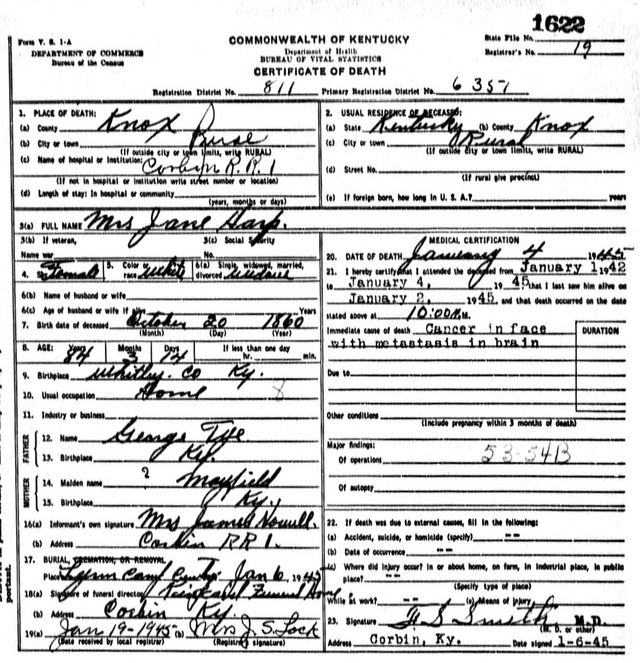 1622
Form V. S. 1-A
DEPARTMENT OF COMMERCE
Bureau of the Census
COMMONWEALTH OF KENTUCKY
Department of Health
BUREAU OF VITAL STATISTICS
CERTIFICATE OF DEATH
State File No.
Registrar's No. 19
Registration District No. 811 Primary Registration District No. 6357
1. PLACE OF DEATH:
(a) County Knox
(b) City or town Rural
(If outside city or town limits, write RURAL)
(c) Name of hospital or institution: Corbyn R.R. 1
(If not in hospital or institution write street number or location)
(d) Length of stay: In hospital or community
(years, months or days)
2. USUAL RESIDENCE OF DECEASED:
(a) State Kentucky (b) County Knox
(c) City or town Rural
(If outside city or town limits, write RURAL)
(d) Street No.
(If rural give precinct)
(e) If foreign born, how long in U. S. A.? years
3(a) FULL NAME Mrs Jane Harp.
3(b) If veteran, 3(c) Social Security
Name war No.
4. Sex Female 5. Color or race White 6(a) Single, widowed, married, divorced
6(b) Name of husband or wife
6(c) Age of husband or wife if alive Years
7. Birth date of deceased October 20 1860
(Month) (Day) (Year)
8. AGE: Years 84 Months 3 Days 14 If less than one day
hr. min.
9. Birthplace Whitley. Co Ky.
10. Usual occupation Home 8
11. Industry or business
FATHER
12. Name George Tye
13. Birthplace Ky.
MOTHER
14. Maiden name ? Mayfield
15. Birthplace Ky.
16(a) Informant's own signature Mrs James Howell.
(b) Address Corbin RR 1.
17. BURIAL, CREMATION, OR REMOVAL
Place Lynn Camp Date Jan 6, 1945
18(a) Signature of funeral director Funeral Home
(b) Address Corbin Ky.
19(a) Jan 19-1945 (b) Mrs J. S. Lock
(Date received by local registrar) (Registrar's signature)
MEDICAL CERTIFICATION
20. DATE OF DEATH January 4 1945
21. I hereby certify that I attended the deceased from January 1, 1942
to January 4, 1945 that I last saw him alive on
January 2, 1945 and that death occurred on the date
stated above at 10:00P.M.
Immediate cause of death Cancer in face
with metastasis in brain
DURATION
Due to
Other conditions
(Include pregnancy within 3 months of death)
Major findings:
Of operations 53-54B
Of autopsy
22. If death was due to external causes, fill in the following:
(a) Accident, suicide, or homicide (specify) --
(b) Date of occurrence --
(c) Where did injury occur? In or about home, on farm, in industrial place, in public
place? --
(Specify type of place)
While at work? -- (e) Means of injury
23. Signature Smith M.D.
(M. D. or other)
Address Corbin, Ky. Date signed 1-6-45